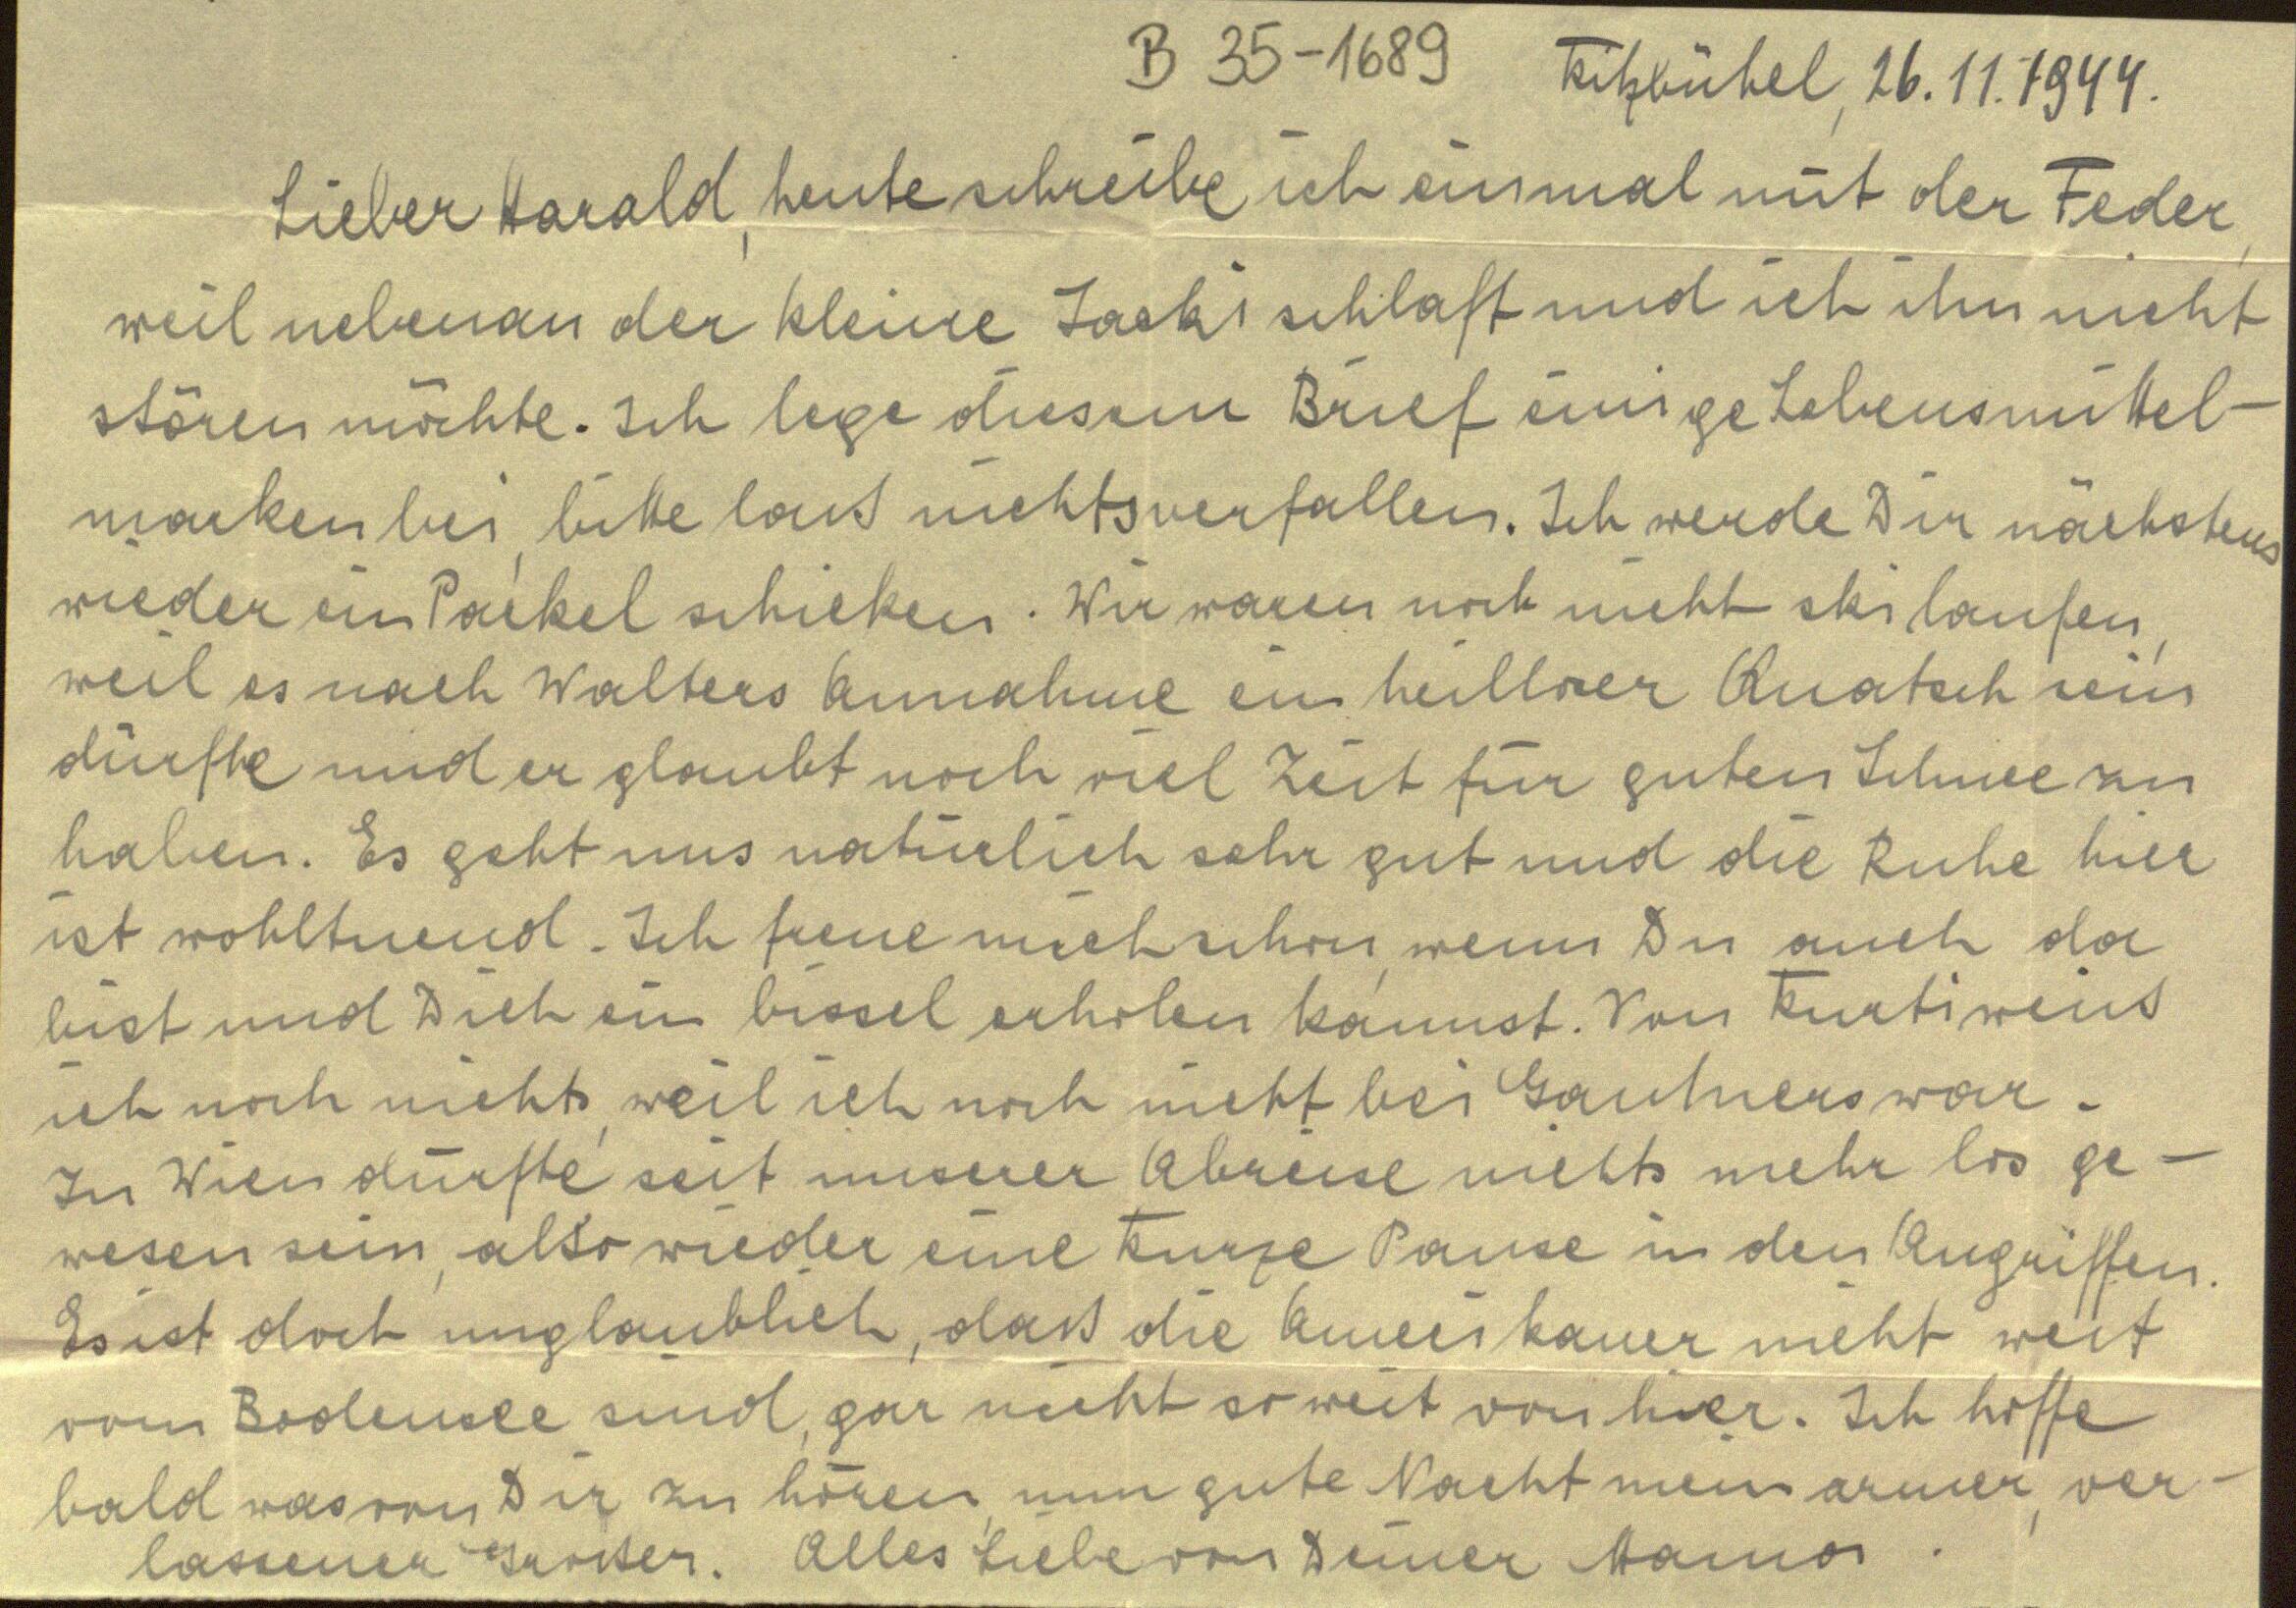 B 35-1689 Kitzbühel, 26.11.1944.
Lieber Harald, heute schreibe ich einmal mit der Feder,
weil nebenan der kleine Jacki schlaft und ich ihn nicht
stören möchte. Ich lege diesem Brief einige Lebensmittel-
marken bei, bitte laß nichts verfallen. Ich werde Dir nächstens
wieder ein Packel schicken. Wir waren noch nicht skilaufen,
weil es nach Walters Annahme ein heilloser Quatsch sein
dürfte und er glaubt noch viel Zeit für guten Schnee zu
haben. Es geht uns natürlich sehr gut und die Ruhe hier
ist wohltuend. Ich freue mich schon, wenn Du auch da
bist und Dich ein bissel erholen kannst. Von Kurti weiß
ich noch nichts, weil ich noch nicht bei war.
In Wien dürfte seit unserer Abreise nichts mehr los ge-
wesen sein, also wieder eine kurze Pause in den Angriffen.
Es ist doch unglaublich, daß die Amerikaner nicht weit
vom Bodensee sind, gar nicht so weit von hier. Ich hoffe
bald was von Dir zu hören, nun gute Nacht mein armer, ver-
lassener Großer. Alles Liebe von Deiner Mama.